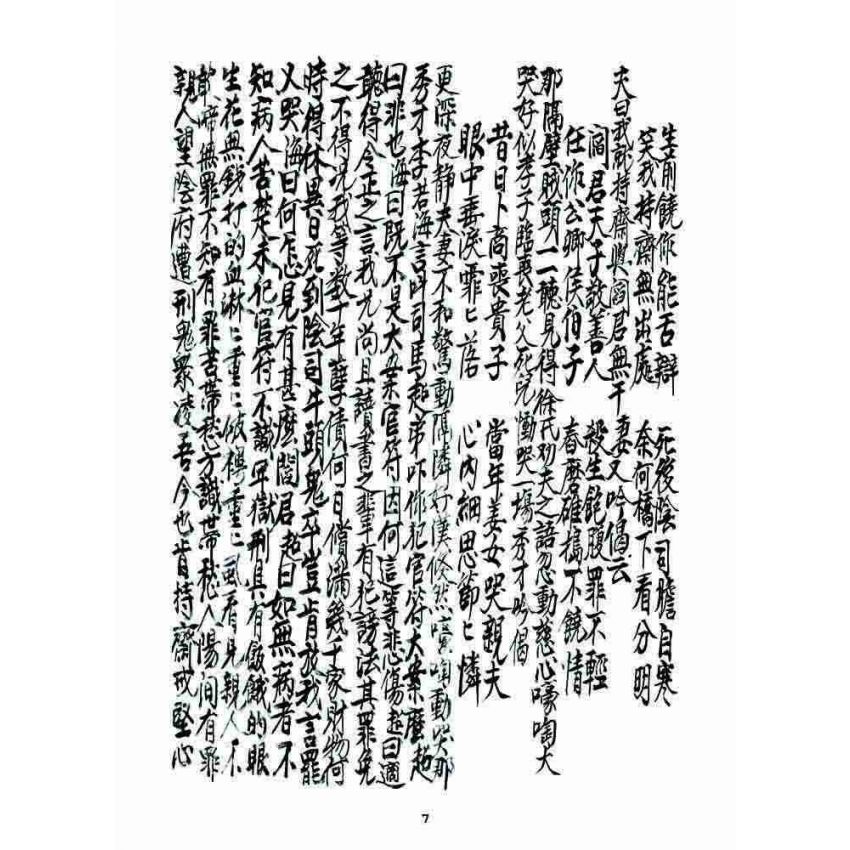 生前饒你能舌辯 死後陰司膽自寒
笑我持齋無出處 奈何橋下看分明
夫曰我就持齋與閻君無干 妻又吟偈云
閻君天子敬善人 殺生飽腹罪不輕
任你公卿侯伯子 舂磨碓搗不饒情
那隔壁賊頭一一聽見得徐氏勸夫之語忽動慈心嚎啕大
哭好似孝子臨喪老父死兒慟哭一場秀才吟偈
昔日卜商喪貴子 當年姜女哭親夫
眼中垂淚霏匕落 心內細思節匕憐
更深夜静夫妻不和驚動隔隣好漢倏然嚎啕動哭那
秀才李若海言叫司馬超弟吓你犯官府大案麼超
曰非也海曰既不是大案官符因何這等悲傷超曰適
聽得令正之言我兄尚且讀書之輩有犯謗法其罪免
之不得况我等数十年孽債何日償滿幾千家財物何
時得休異日死到陰司牛頭鬼卒豈肯放我言罷
又哭海曰何乍見有甚麽閻君超曰如無病者不
知病人苦楚未犯官符不識牢獄刑具有餓餓的眼
生花無錢打的血淋二重二做櫈重二風看見親人不
郎啼無罪不知有罪苦帶愁方識世帶愁人陽间有罪
親人望陰府遭刑鬼眾凌吾今也肯持齋戒堅心
7